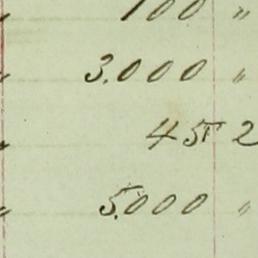 100 "
" 3.000 "
" 45 2
" 5.000 "